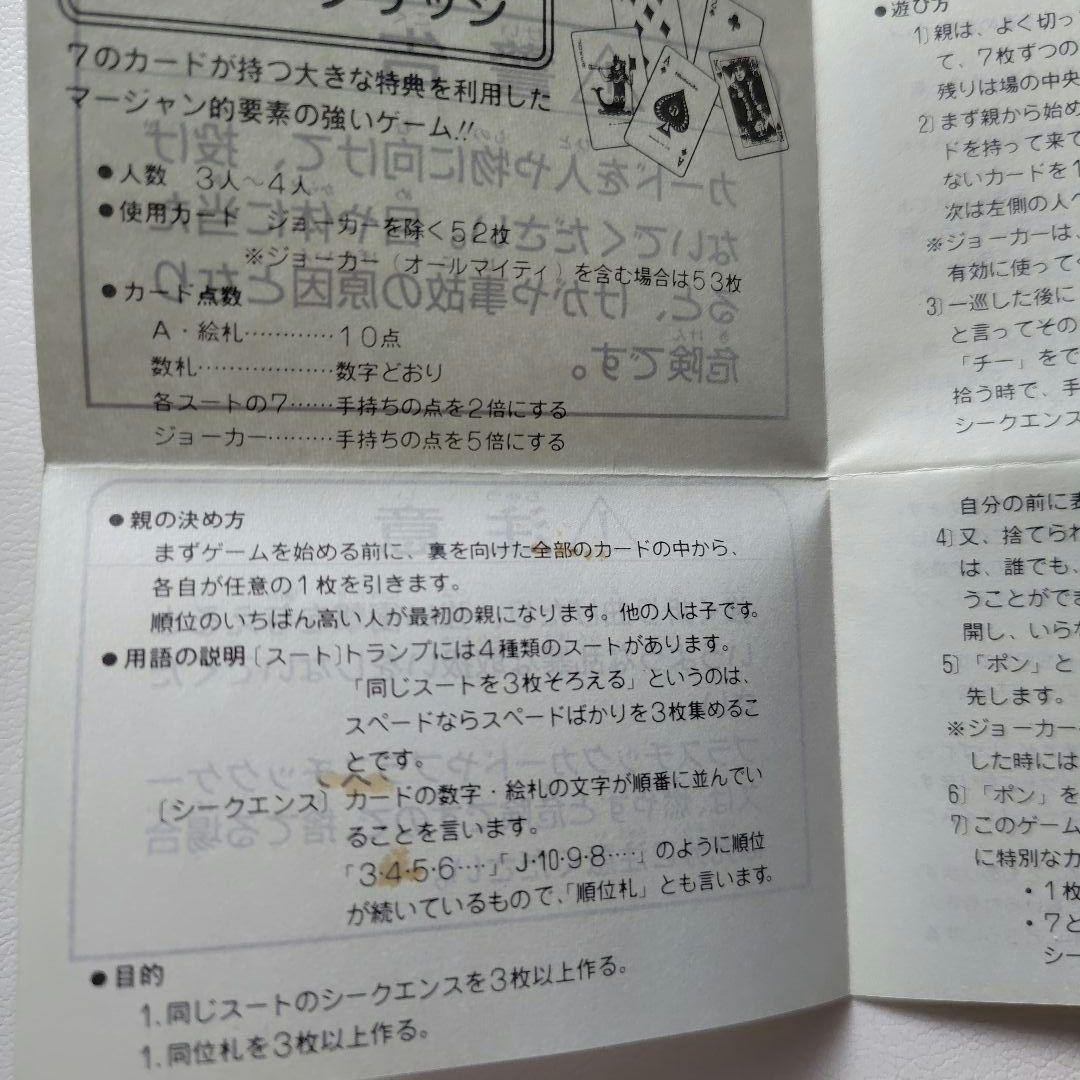 7のカードが持つ大きな特典を利用した
マージャン的要素の強いゲーム!!
●人数　3人~4人
●使用カード　ジョーカーを除く52枚
※ジョーカー(オールマイティ)を含む場合は53枚
●カード点数
A・絵札…………10点
数札………………数字どおり
各スートの7……手持ちの点を2倍にする
ジョーカー………手持ちの点を5倍にする
●親の決め方
まずゲームを始める前に、裏を向けた全部のカードの中から、
各自が任意の1枚を引きます。
順位のいちばん高い人が最初の親になります。他の人は子です。
●用語の説明〔スート〕トランプには4種類のスートがあります。
「同じスートを3枚そろえる」というのは、
スペードならスペードばかりを3枚集めるこ
とです。
〔シークエンス〕カードの数字・絵札の文字が順番に並んでい
ることを言います。
「3・4・5・6‥‥」「J・10・9・8‥‥」のように順位
が続いているもので、「順位札」とも言います。
●目的
1.同じスートのシークエンスを3枚以上作る。
1.同位札を3枚以上作る。
●遊び方
1)親は、よく切っ
て、7枚ずつの
残りは場の中央
2)まず親から始め
ドを持って来て
ないカードを1
次は左側の人へ
※ジョーカーは、
有効に使って
3)一巡した後に
と言ってその
「チー」をで
拾う時で、手
シークエンス
自分の前に表
4)又、捨てられ
は、誰でも、
うことができ
開し、いらな
5)「ポン」と
先します。
※ジョーカー
した時には
6)「ポン」を
7)このゲーム
に特別なカ
・1枚
・7と
シー